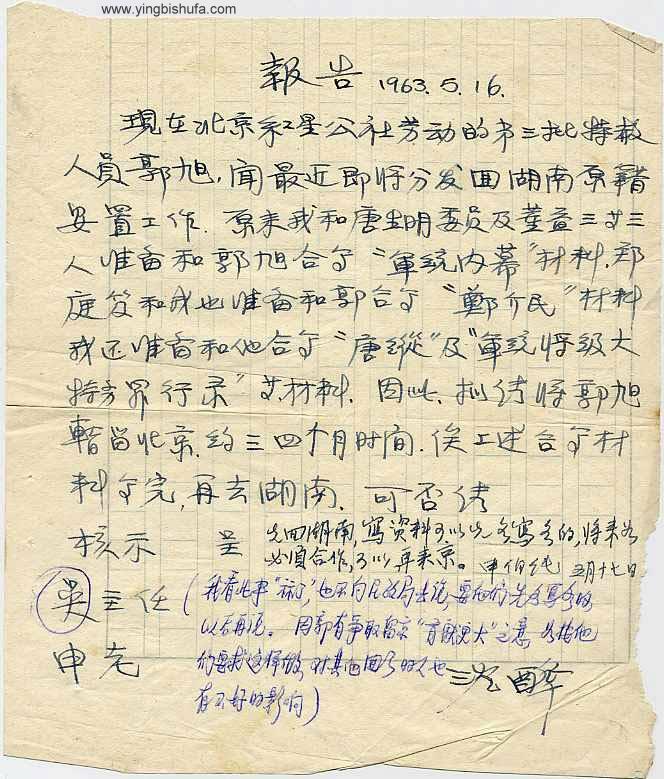 www.yingbishufa.com
報告 1963.5.16.
現在北京紅星公社劳动的第三批特赦
人員郭旭,聞最近即将分发回湖南原籍
安置工作.原来我和唐生明委员及董益三等三
人准备和郭旭合写"軍統内幕"材料.郑
庭笈和我也准备和郭合写"鄭介民"材料
我还准备和他合写"唐縱"及"軍統将级大
特务罪行录"等材料.因此,拟请将郭旭
暫留北京.约三四个月时间.俟上述合写材
料写完,再去湖南.可否请
核示 呈
先回湖南,寫資料可以先各寫各的,将来如
必須合作,可以再来京。申伯纯 五月十七日
吴主任
申老
(我看此事"算了",也不向民政局去说,要他们先各写各的
以后再说。因郭有争取留京
们要求这样做,对其他回乡的人也
有不好的影响)
沈醉